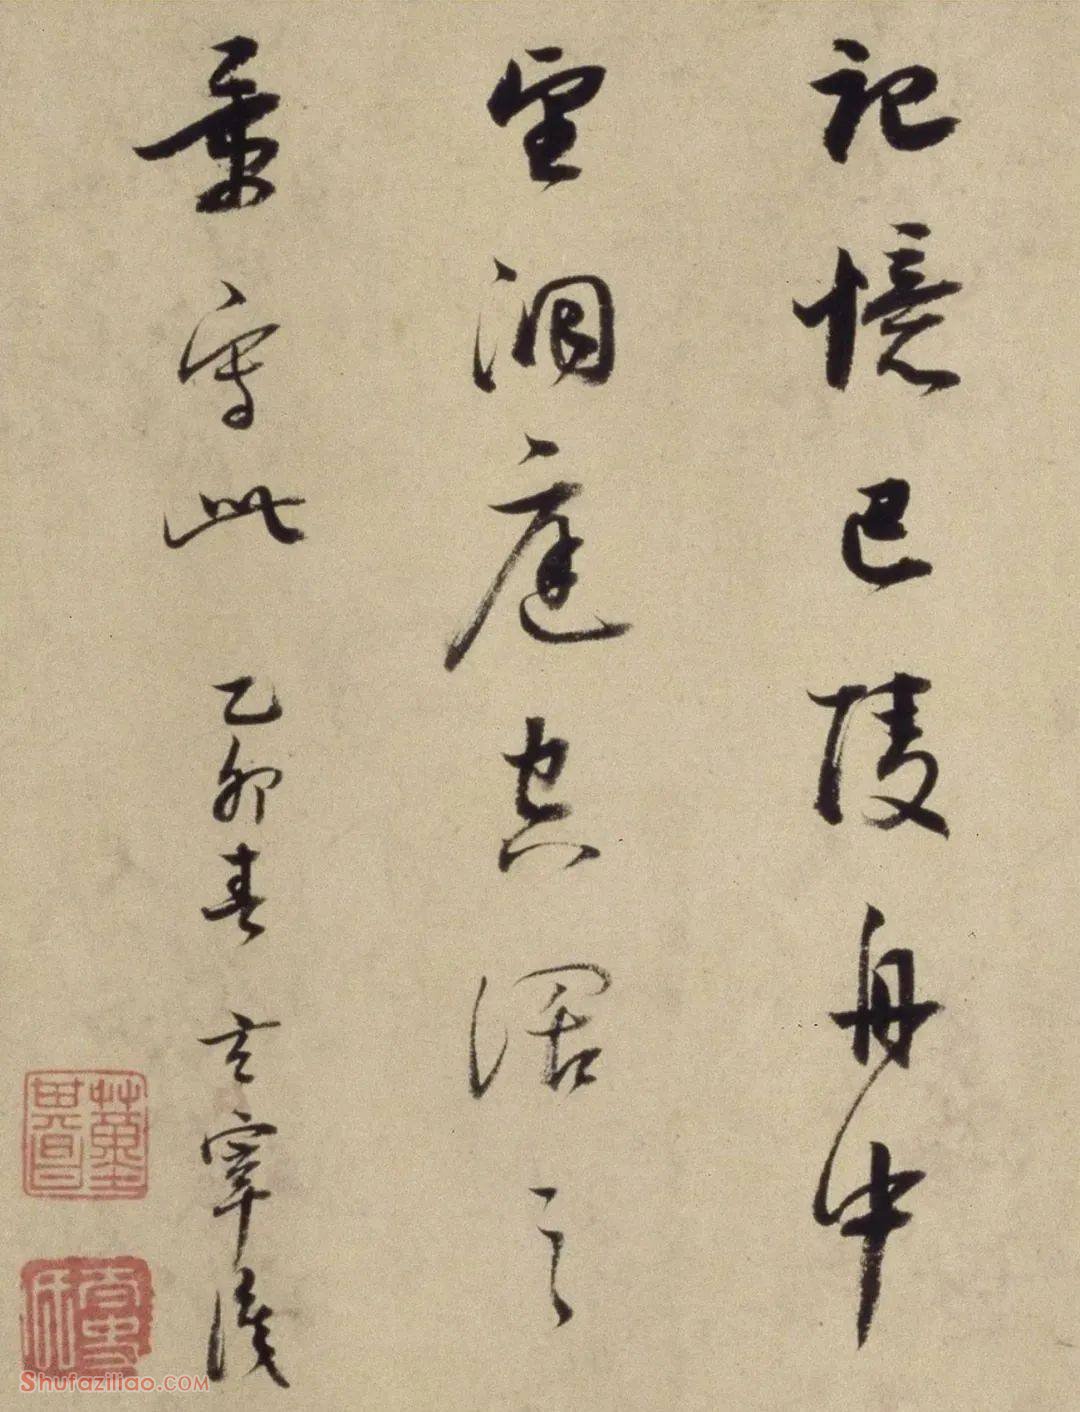 記憶巴陵舟中
望洞庭空闊之
景寫此 乙卯春 玄宰識
董其昌
Shufaziliao.COM